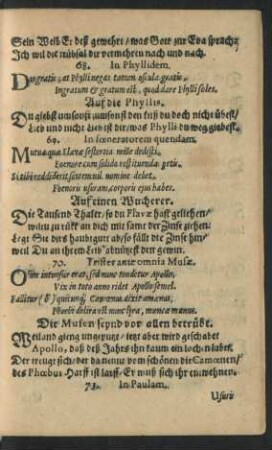 Sein Weib Er deß gewehrt / was Gott zur Eva sprach:
Ich wil die mühsal dir vermehren nach und nach.
68. In Phyllidem.
Das gratis, at Phylli negas totum oscula gratis,
Ingratum & gratum est, quod dare Phylli soles.
Auf die Phyllis.
Du giebst umsonst den kuß du doch nicht übest /
Lieb und nicht lieb ist dir / was Phylli du weg giebest.
69. In fœneratorem quendam.
Mutua quæ Flavæ sestertia mille dedisti,
Fœnore cum solido restituenda petis.
Si tibi reddiderit sortem nil nomine debet,
Fœnoris usuram, corporis ejus habes.
Auf einen Wucherer.
Die Tausend Thaler / so du Flavæ hast geliehen /
wilstu zu rükk an dich mit samt der Zinse ziehen:
Legt Sie dirs hauptgutt ab / so fällt die Zinse hin /
weil Du an ihrem Leib' abnützest den gewin.
70. Tristes ante omnia Musæ.
Olim intonsus erat, sed nunc tondetur Apollo,
Vix in toto anno ridet Apollo semel.
Fallitur (ô) quicunq; Camœnas dixit amœnas,
Phœbi delira est nunc lyra, manca manus.
Die Musen seynd vor allen betrübt.
Weiland gieng ungeputzt / jetzt aber wird geschabet
Apollo, daß deß Jahrs ihn kaum ein lachen labet.
Der treugt sich / der da nennt vom schönen die Camœnen /
des Phœbus Harff ist larff / Er muß sich ihr entwehnen.
71. In Paulam.
Usuris